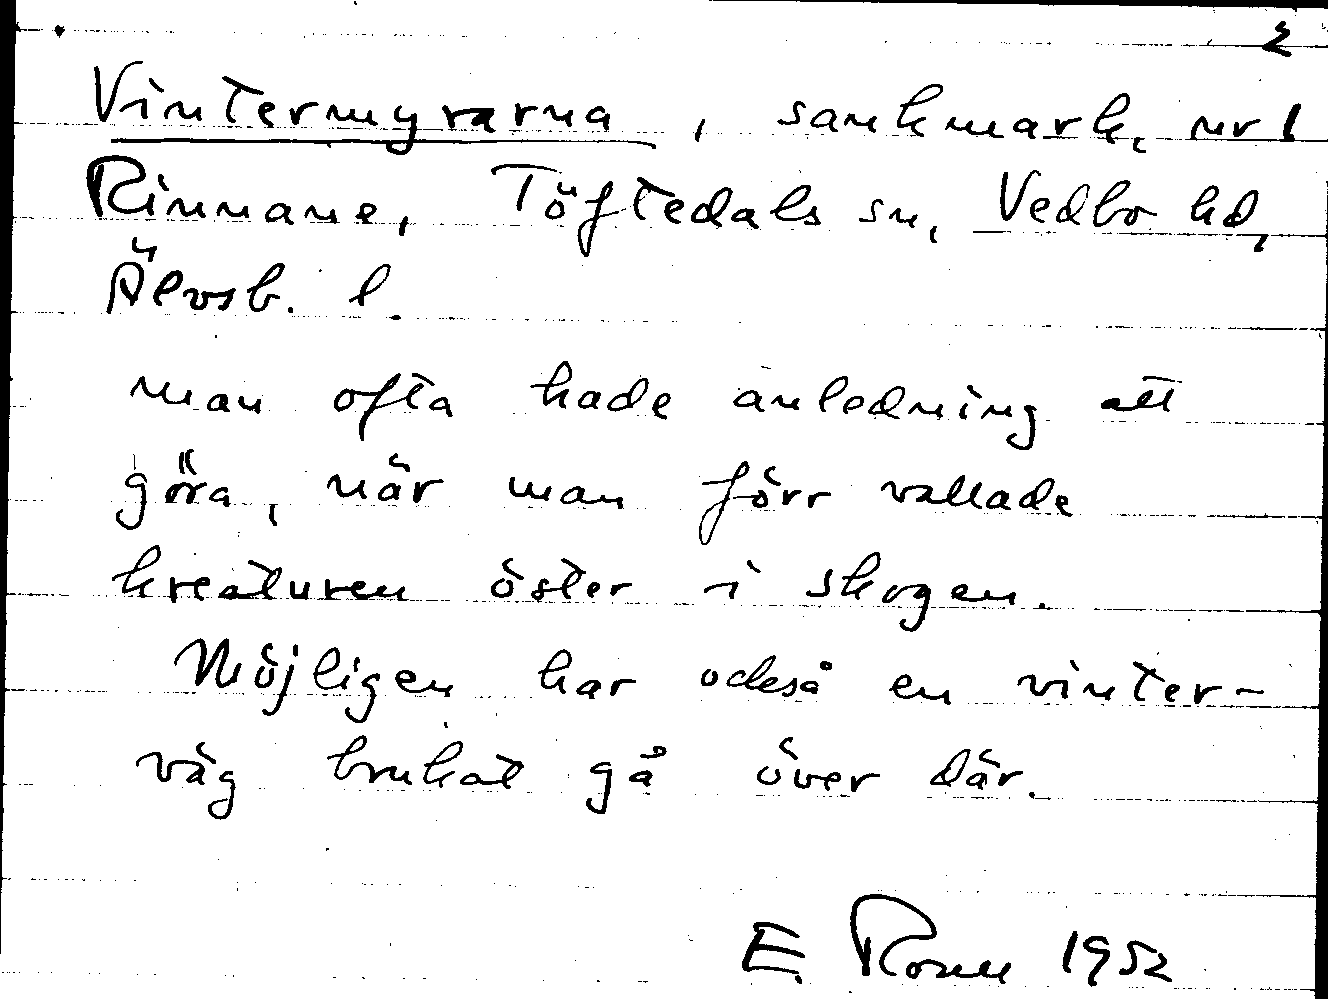 2
Vintermyrarna, sankmark, nr 1
Rinnane, Töftedals sn, Vedbo hd,
Älvsb. l.
man ofta hade anledning att
göra, när man förr vallade
kreaturen öster i skogen.
Möjligen har också en vinter-
väg brukat gå över där.
E. Rosen 1952